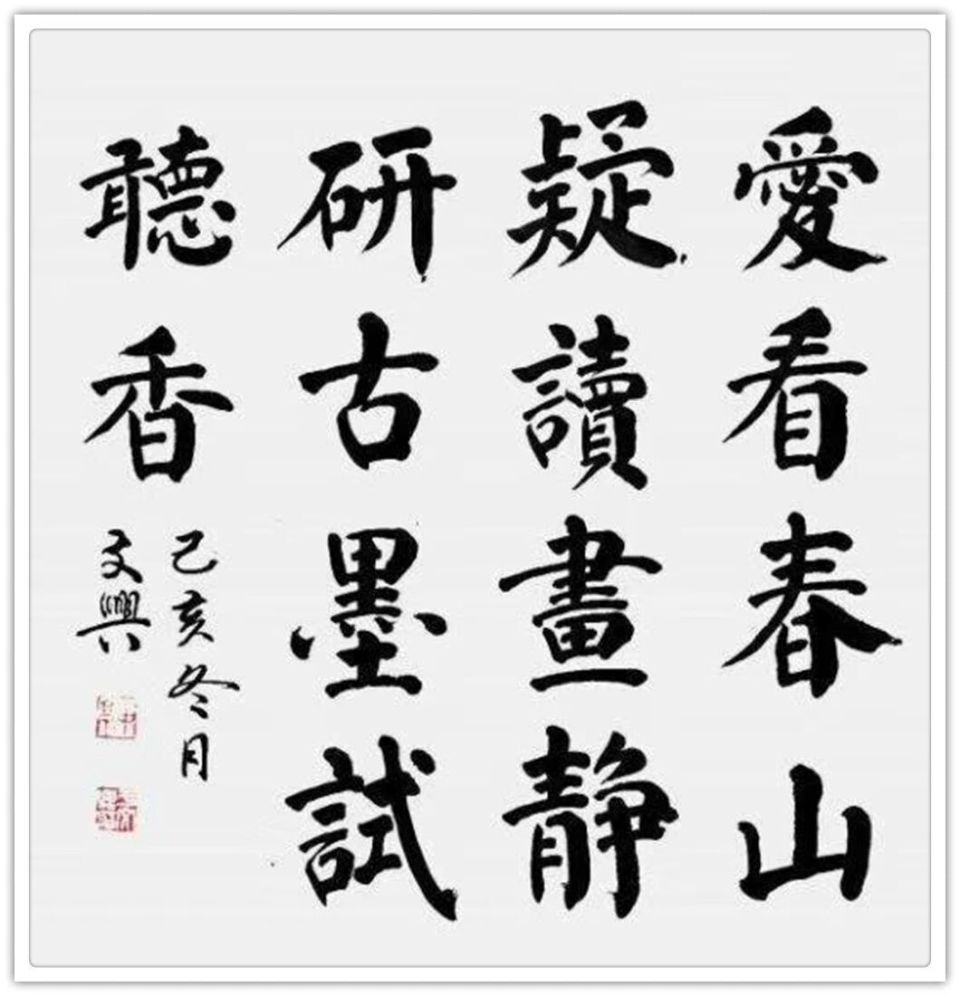 愛看春山
疑讀畫靜
研古墨試
聽香
己亥冬月
文興